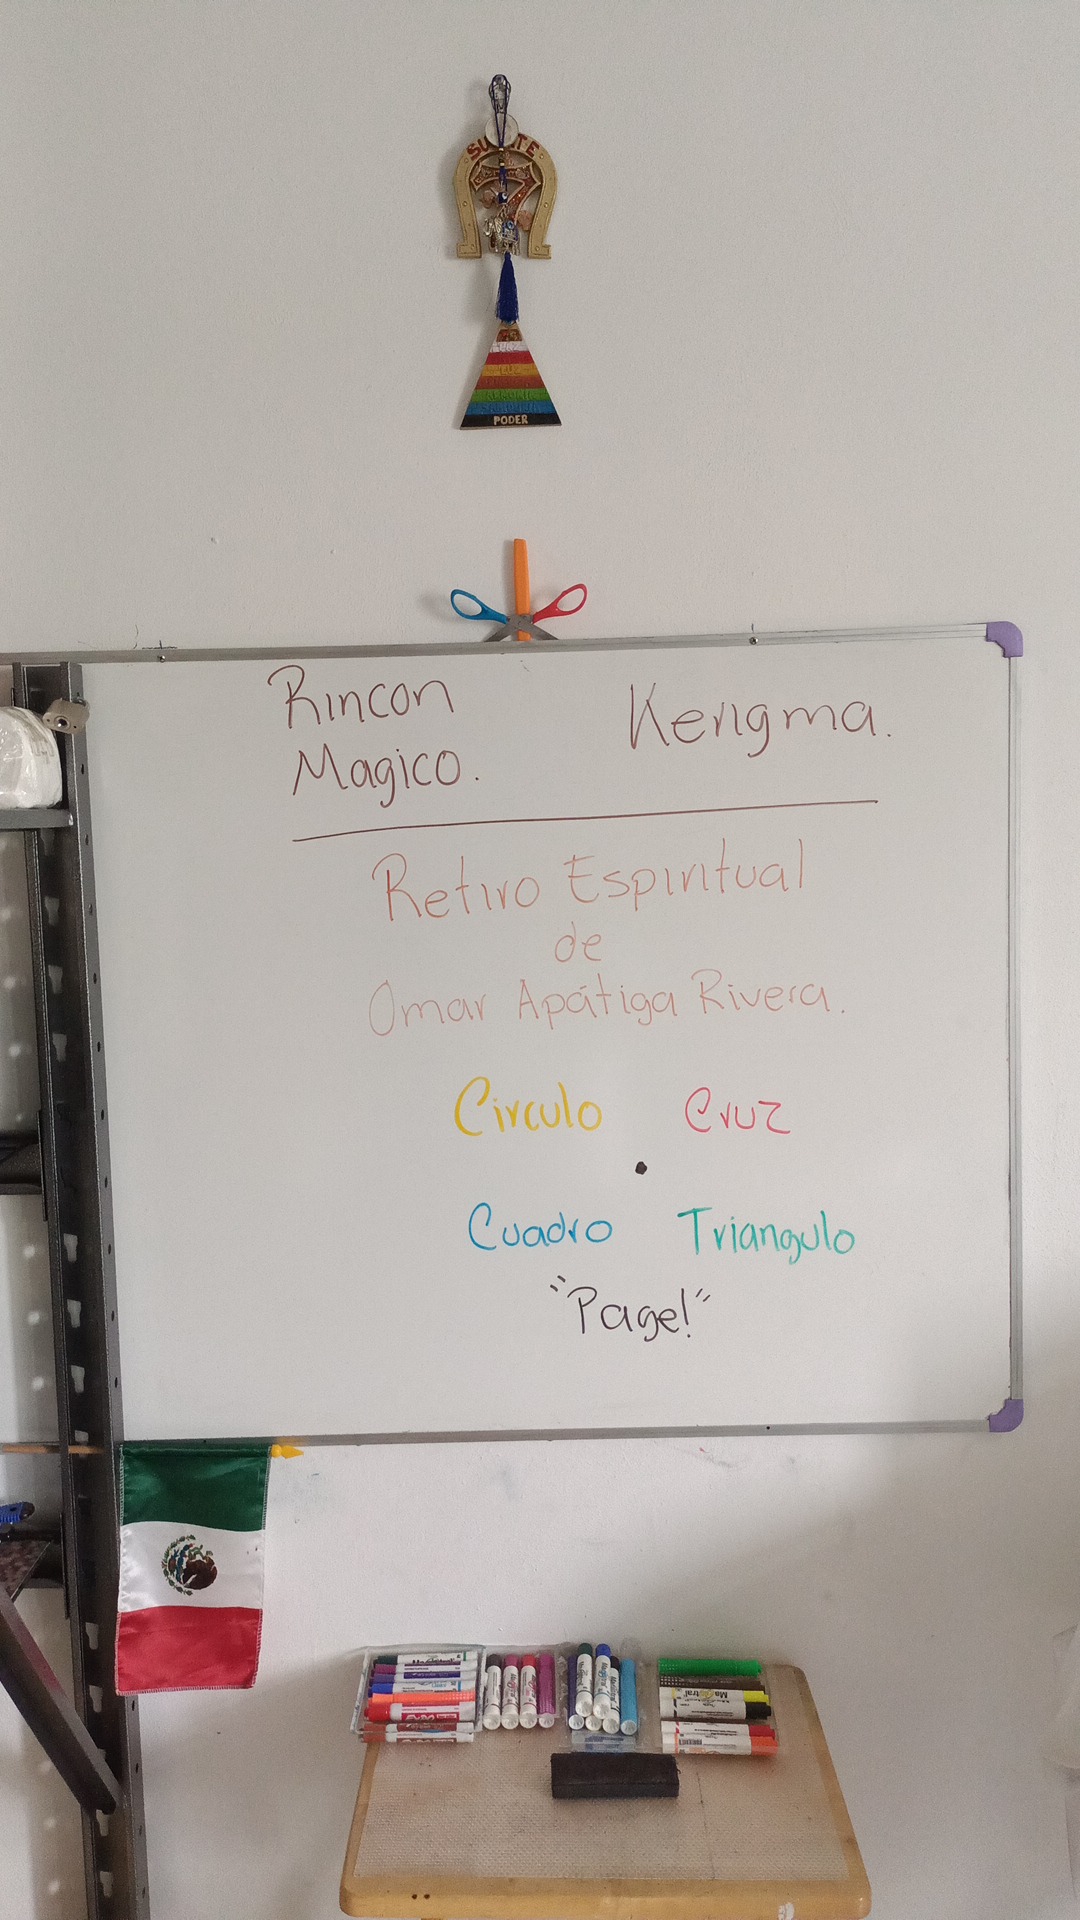 SUERTE
7
PODER
Rincon
Magico.
Kerigma.
Retiro Espiritual
de
Omar Apátiga Rivera.
Circulo Cruz
Cuadro Triangulo
"Page!"